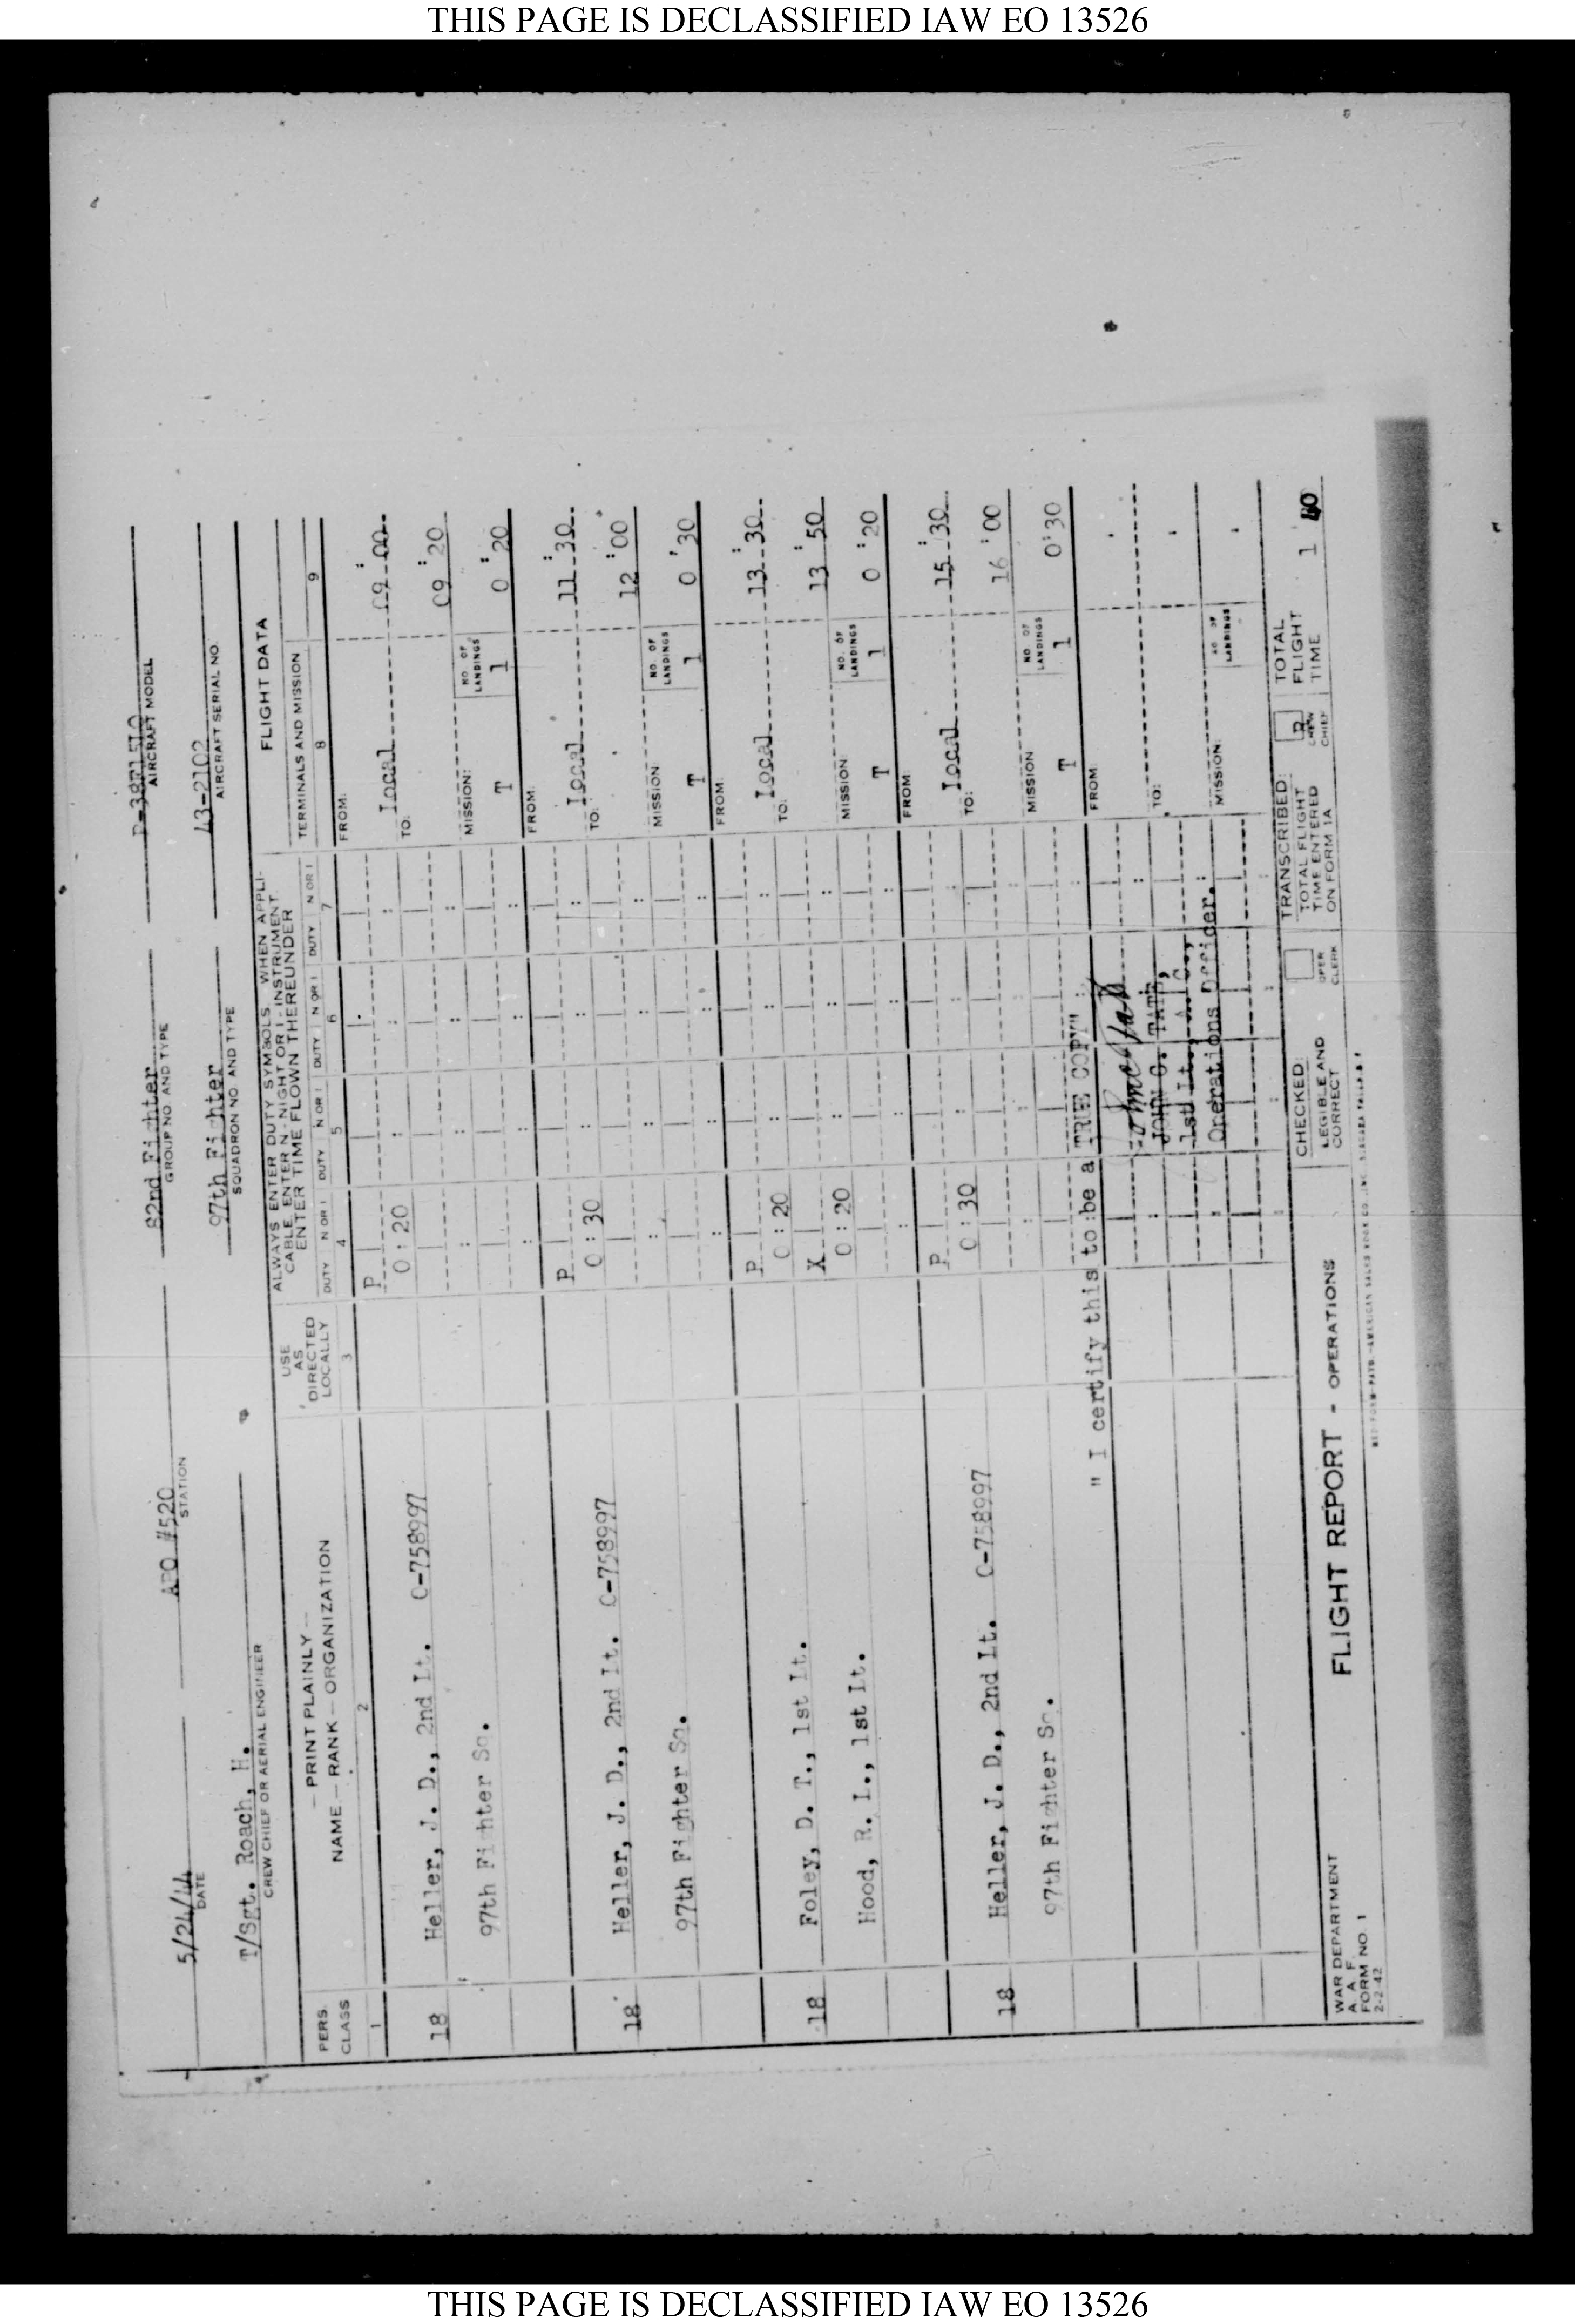 THIS PAGE IS DECLASSIFIED IAW EO 13526
5/24/44 APO #520 82nd Fighter
DATE STATION GROUP NO AND TYPE AIRCRAFT MODEL
T/Sgt. Roach, H. 97th Fighter 43-2102
CREW CHIEF OR AERIAL ENGINEER SQUADRON NO. AND TYPE AIRCRAFT SERIAL NO.
PERS. CLASS
1
— PRINT PLAINLY —
NAME — RANK — ORGANIZATION
2
USE AS DIRECTED LOCALLY
3
ALWAYS ENTER DUTY SYMBOLS. WHEN APPLI-
CABLE, ENTER N - NIGHT OR I - INSTRUMENT.
ENTER TIME FLOWN THEREUNDER
DUTY N OR I DUTY N OR I DUTY N OR I DUTY N OR I
4 5 6 7
FLIGHT DATA
TERMINALS AND MISSION
8 9
18 Heller, J. D., 2nd Lt. O-758997 P 0:20 FROM: Local 09:00
TO: 09:20
97th Fighter Sq. MISSION: T NO. OF LANDINGS 1 0:20
18 Heller, J. D., 2nd Lt. O-758997 P 0:30 FROM: Local 11:30
TO: 12:00
97th Fighter Sq. MISSION: T NO. OF LANDINGS 1 0'30
18 Foley, D. T., 1st Lt. P 0:20 FROM: Local 13:30
TO: 13:50
Hood, R. L., 1st Lt. X 0:20 MISSION T NO. OF LANDINGS 1 0:20
18 Heller, J. D., 2nd Lt. O-758997 P 0:30 FROM Local 15:30
TO: 16:00
97th Fighter Sq. MISSION T NO. OF LANDINGS 1 0'30
" I certify this to be a TRUE COPY" FROM:
JOHN C. TATE, TO:
1st Lt., A.C.,
Operations Officer. MISSION: NO OF LANDINGS
WAR DEPARTMENT
A. A. F.
FORM NO. 1
2-2-42
FLIGHT REPORT - OPERATIONS
CHECKED:
LEGIBLE AND CORRECT
OPER CLERK
TRANSCRIBED:
TOTAL FLIGHT TIME ENTERED ON FORM 1A
CREW CHIEF
TOTAL FLIGHT TIME 1 40
THIS PAGE IS DECLASSIFIED IAW EO 13526